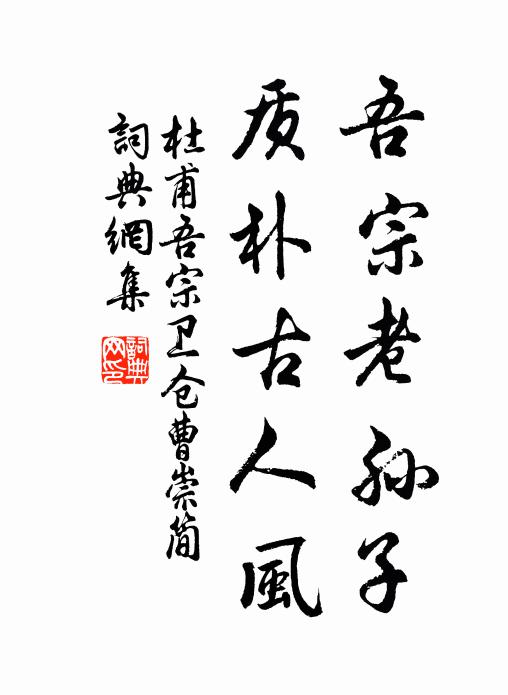 吾宗老孙子
质朴古人風
杜甫吾宗卫仓曹崇简
詞典網集
詞典网印